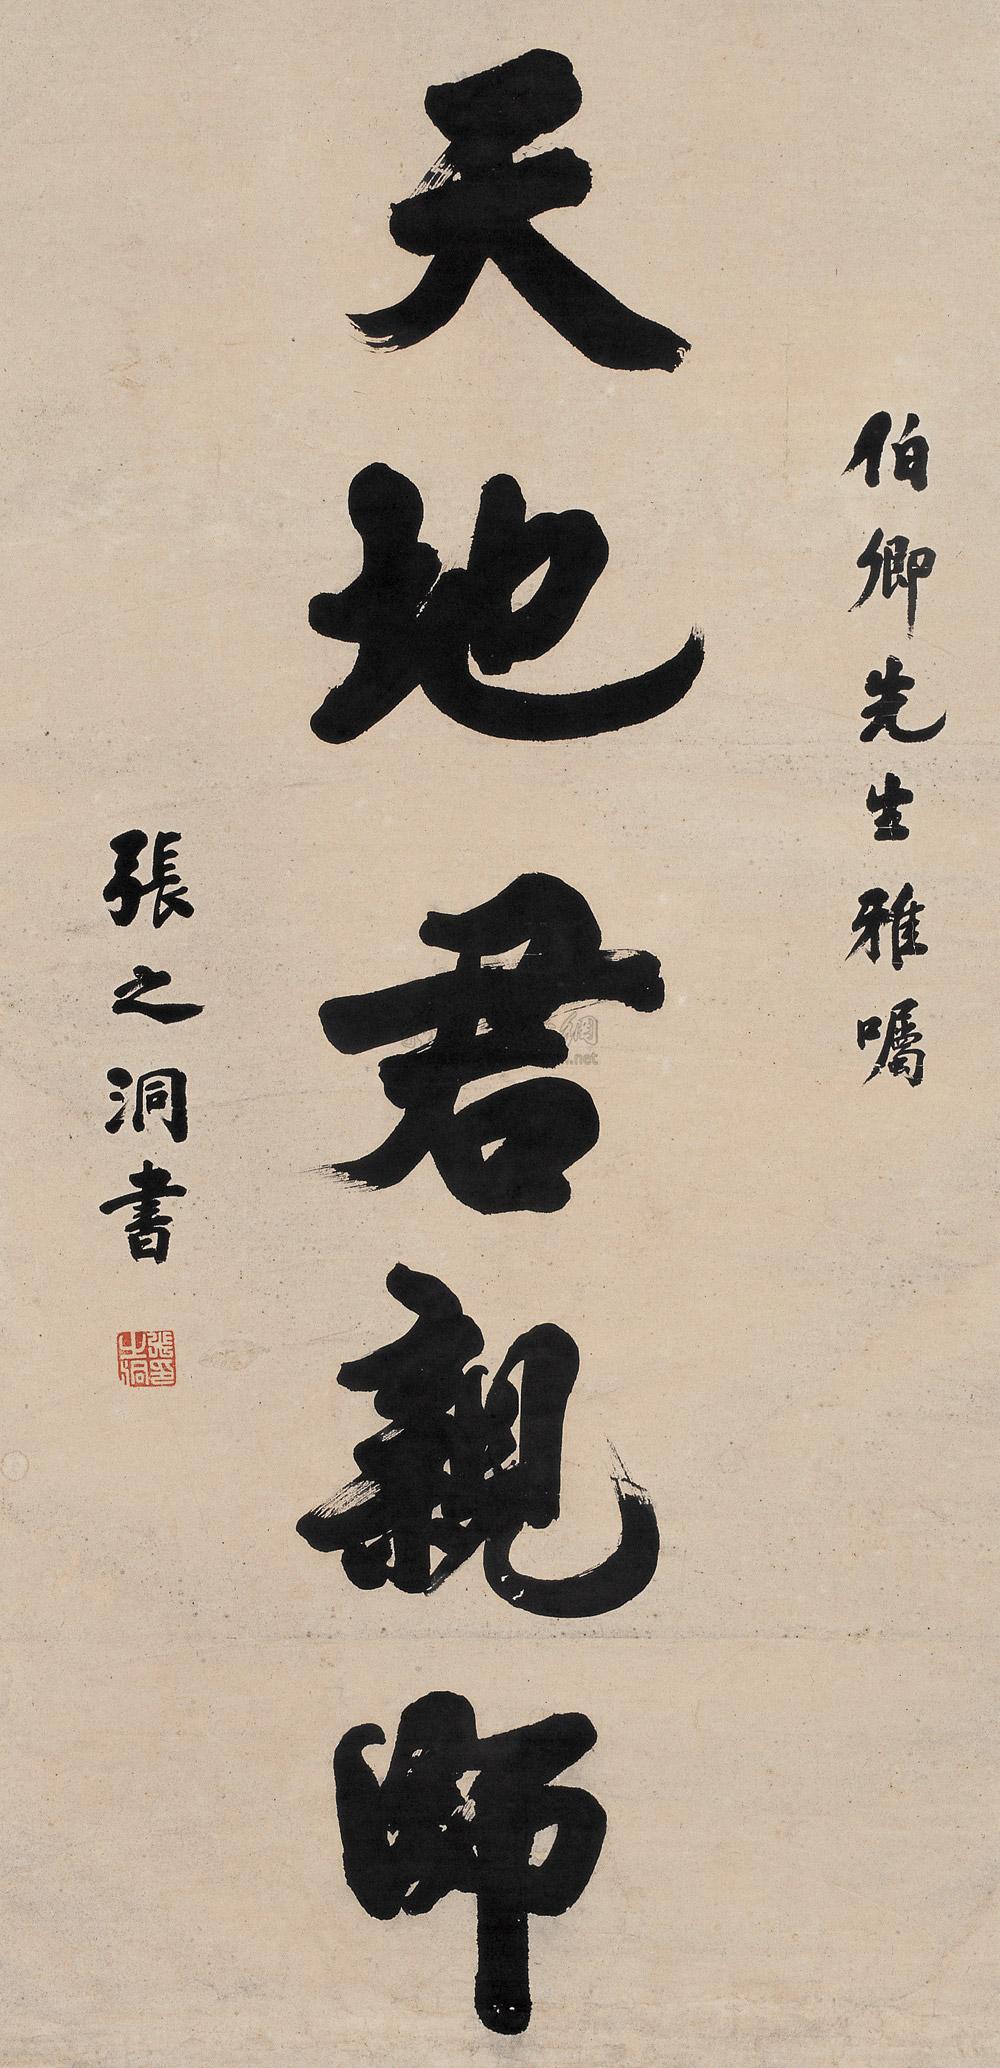 伯卿先生雅囑
天地君親師
張之洞書
張之洞印
網
.net